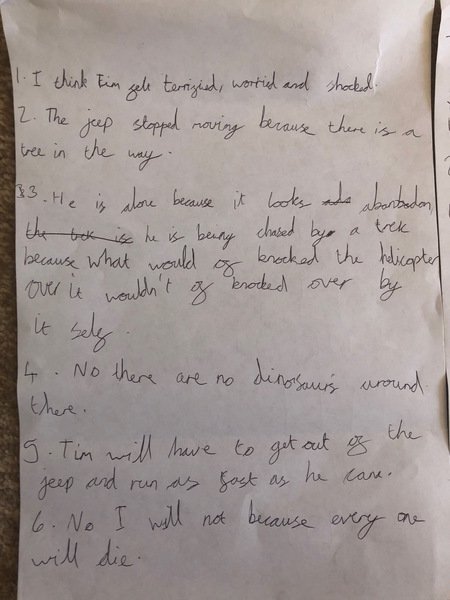 1. I think Tim felt terrified, worried and shocked.
2. The jeep stopped moving because there is a
tree in the way.
3. He is alone because it looks abanbadon,
the trek is he is being chased by a trek
because what would of knocked the helicopter
over it wouldn't of knocked over by
it self.
4. No there are no dinosaurs around
there.
5. Tim will have to get out of the
jeep and run as fast as he can.
6. No I will not because every one
will die.